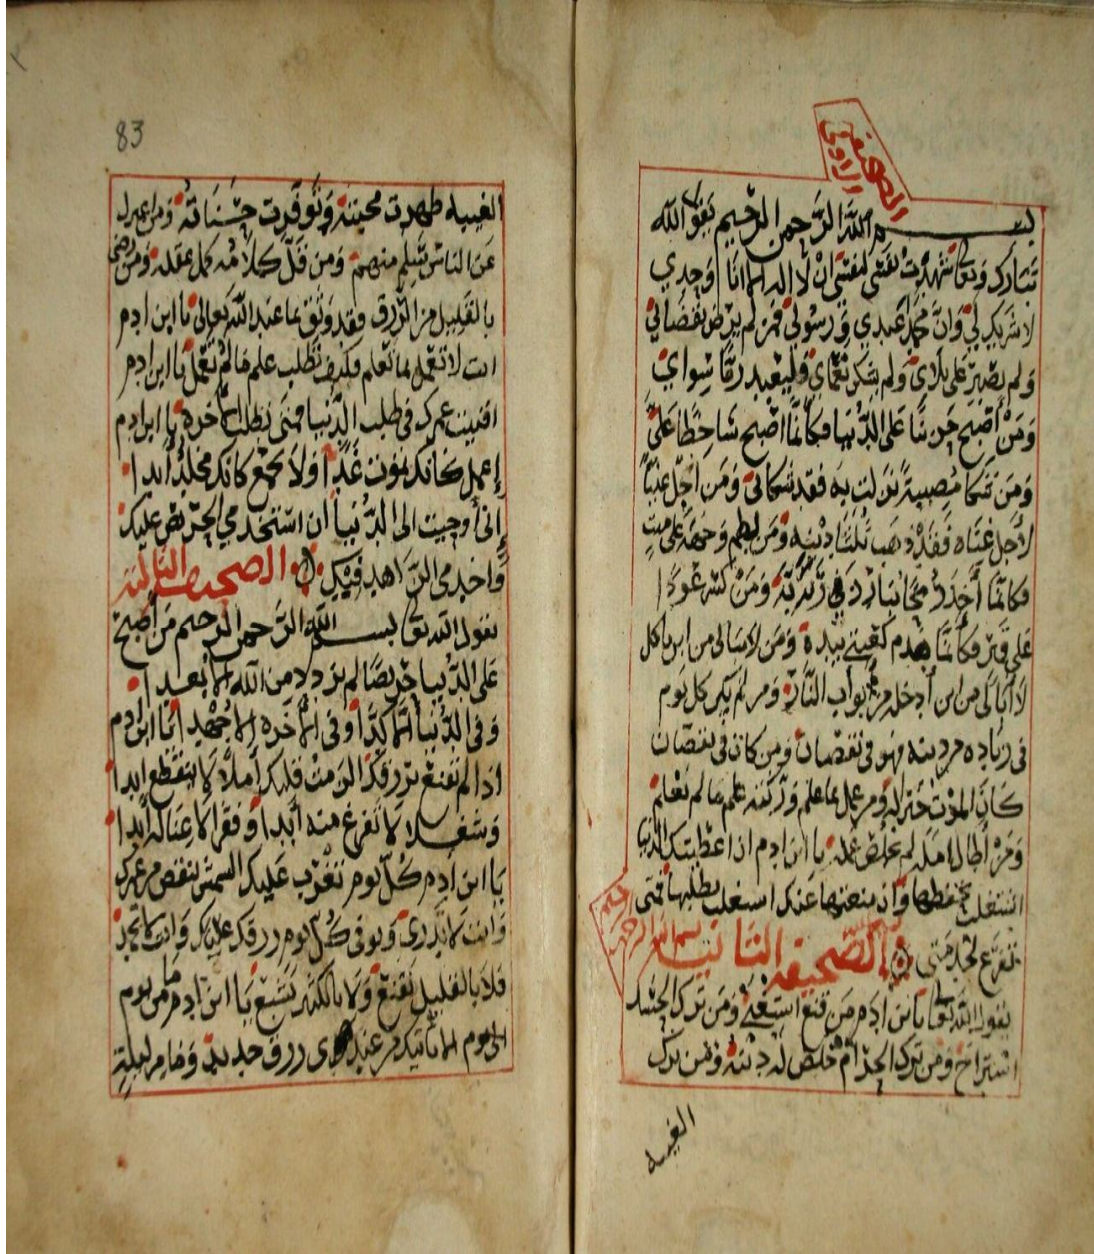 الصحيفة الاولى
بسم الله الرحمن الرحيم يقول الله
تبارك وتعا شهدت نفسي لنفسي ان لا اله الا انا وحدي
لا شريك لي وان محمد عبدي ورسولي فمن لم يرض بقضائي
ولم يصبر على بلائي ولم يشكر نعمائي فليعبد ربا سواي
ومن اصبح حزينا على الدنيا فكانما اصبح ساخطا علي
ومن شكا مصيبة نزلت به فقد شكاني ومن اجل غنيا
لاجل غناه فقد ذهب ثلثا دينه ومن لطم وجهه على ميت
فكانما اخذ رمحا يبارزني به ومن كسر عودا
على قبر فكانما هدم كعبتي بيده ومن لا يبالي من اين ياكل
لا ابالي من اين ادخله من ابواب النار ومن لم يكن كل يوم
في زياده من دينه فهو في نقصان ومن كان في نقصان
كان الموت خير له ومن عمل بما علم ورثته علم ما لم يعلم
ومن اطال امله لم يخلص عمله يا ابن ادم اذا اعطيتك الدنيا
اشتغلت بحفظها وان منعتها عنك اشتغلت بطلبها فمتى
تتفرغ لخدمتي الصحيفة الثانية بسم الله الرحمن الرحيم
يقول الله تعا يا ابن ادم من قنع استغنى ومن ترك الحسد
استراح ومن ترك الحرام خلص له دينه ومن ترك
الغيبه
83
الغيبه ظهرت محبته وتوفرت حسناته ومن اعتزل
عن الناس سلم منهم ومن قل كلامه كمل عقله ومن رضي
بالقليل من الرزق فقد وثق بما عند الله تعالى يا ابن ادم
انت لا تعمل بما تعلم فكيف تطلب علم ما لم تعمل يا ابن ادم
افنيت عمرك في طلب الدنيا فمتى تطلب الاخره يا ابن ادم
اعمل كانك تموت غدا ولا تجمع كانك مخلد ابدا
اني اوحيت الى الدنيا ان استخدمي الحريص عليك
واخدمي الزاهد فيك الصحيفة الثالثة
يقول الله تعا بسم الله الرحمن الرحيم من اصبح
على الدنيا حريصا لم يزدد من الله الا بعدا
وفي الدنيا الا كدا وفي الاخره الا جهدا يا ابن ادم
اذا لم تقنع برزقك الزمت قلبك املا لا ينقطع ابدا
وشغلا لا تفرغ منه ابدا وفقرا لا غنا له ابدا
يا ابن ادم كل يوم تغرب عليك الشمس ينقص من عمرك
وانت لا تدري وتوفى كل يوم رزقك عليك وانت لا تحمد
فلا بالقليل تقنع ولا بالكثير تشبع يا ابن ادم ما من يوم
الى يوم الا ياتيك من عندي رزق جديد وما من ليلة